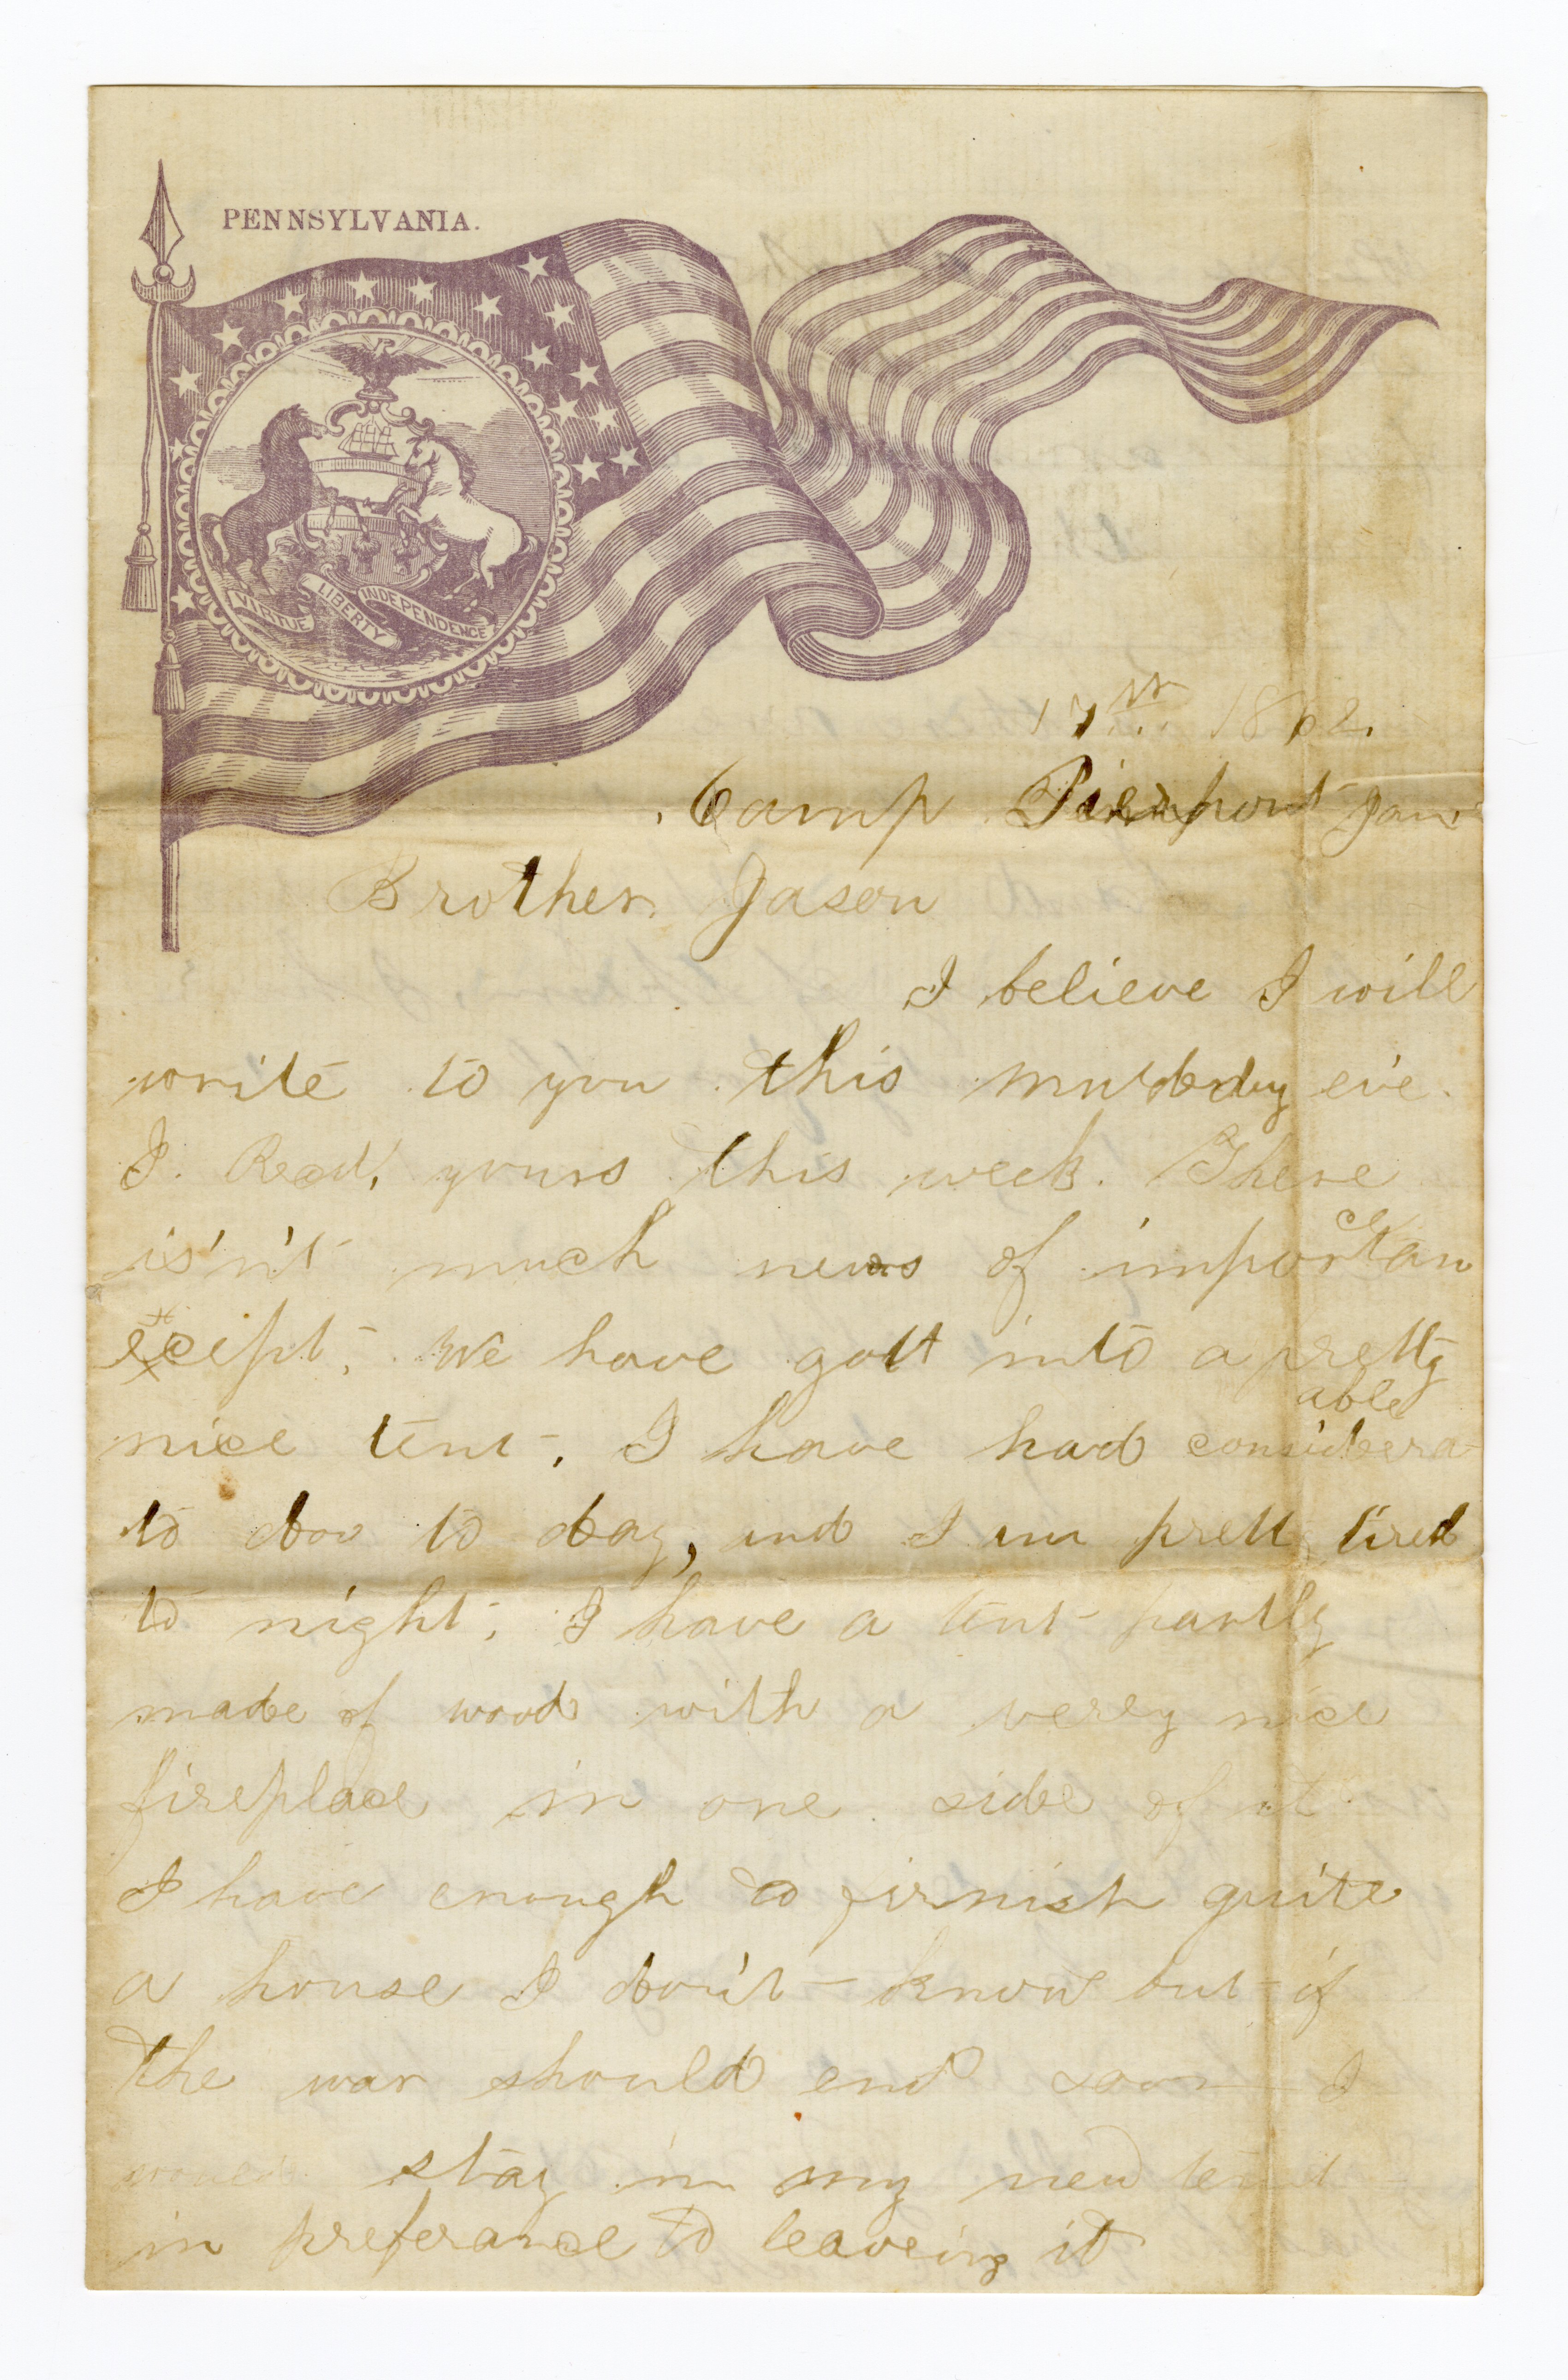 PENNSYLVANIA.
VIRTUE LIBERTY INDEPENDENCE
17th 1862.
Camp Pierpont Jan.
Brother Jason
I believe I will
write to you this eve.
I. Recd, yours this week. There
is'n't much news of importan
ce
excipt, We have gott into a pretty
nice tent, I have had considera
able
to doo to day, and I am prett tired
to night, I have a tent partly
made of wood with a verey nice
fireplace in one side of it
I have enough to firnish quite
a house I don't know but if
the war should end soon I
would stay in my new tent
in preferance to leaveing it